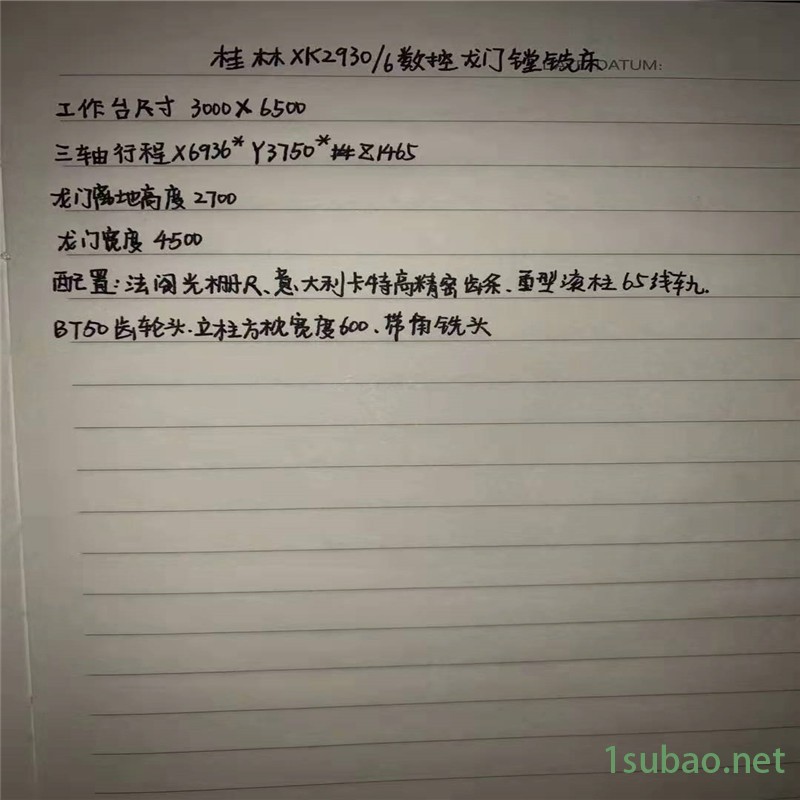 桂林XK2930/6数控龙门镗铣床
DATUM:
工作台尺寸 3000X6500
三轴行程X6936*Y3750*Z1465
龙门离地高度2700
龙门宽度 4500
配置:法阁光栅尺、意大利卡特高精密齿条、重型滚柱65线轨.
BT50齿轮头.立柱方枕宽度600、带角铣头
1subao.net